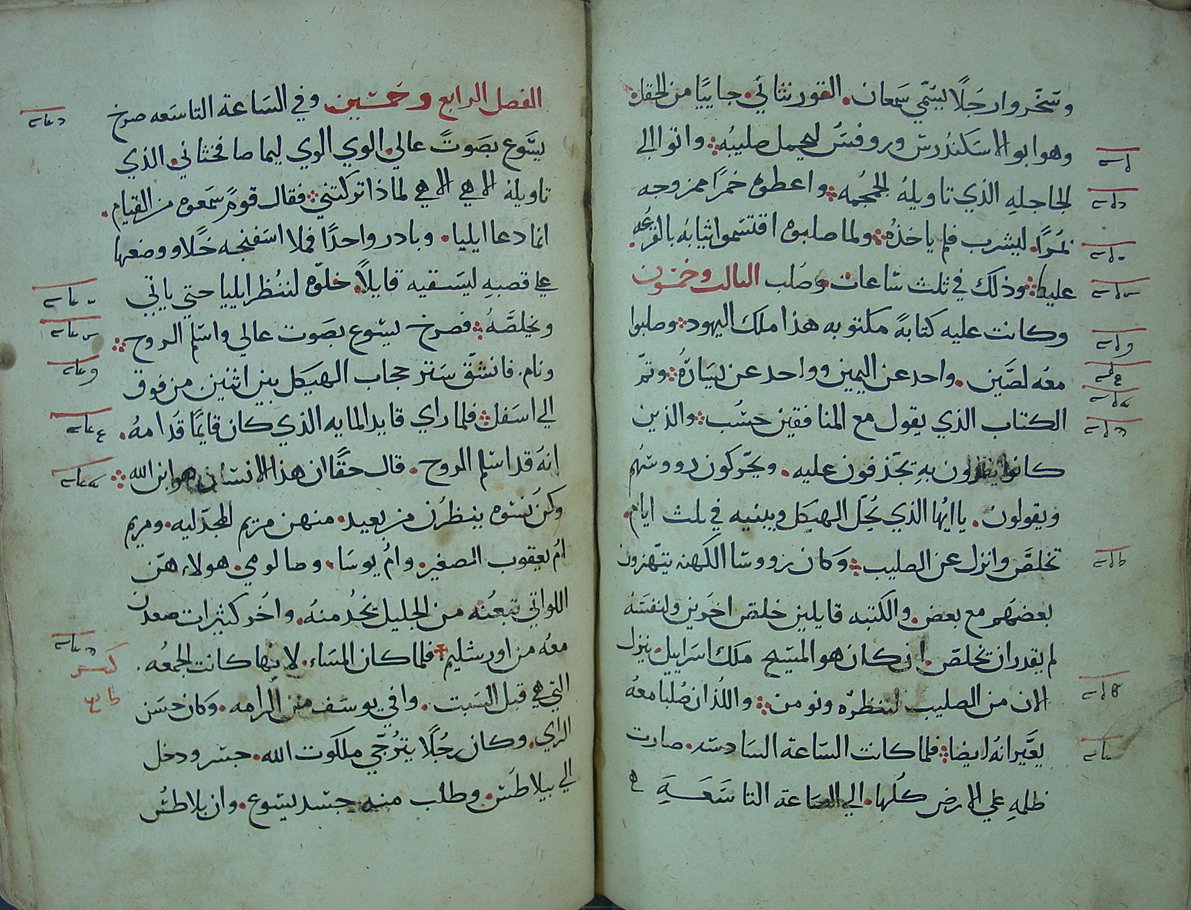 وسخروا رجلًا يسمى سمعان. القورنثاني. جاييًا من الحقل.
وهو ابو الاسكندرس وروفس ليحمل صليبه. واتوا الي
الجاجله الذي تاويله الجمجمه. واعطوه خمرًا ممزوجه
مُرًا. ليشرب فلم ياخذه. ولما صلبوه اقتسموا ثيابه بالقرعه
عليها. وذلك في ثلث ساعات. وصُلب الثالث وخمسون
وكانت عليه كتابةً مكتوبه هذا ملك اليهود. وصلبوا
معه لصَّين. واحد عن اليمين وواحد عن يسَارهُ. وتم
الكتاب الذي يقول مع المنافقين حسُب. والذين
كانوا به يجذفون عليه. ويحركون رووسهم
ويقولون. يا ايُها الذي يُحل الهيكل ويبنيه في ثلث ايام.
تخلصَّ وانزل عن الصليب. وكان رووسا الكهنه يتهزون
بعضهم مع بعض. والكتبه قايلين خلص اخرين ولنفسَه
لم يقدر ان يخلصَ. ان كان هو المسيح ملك اسراييل. ينزل
الان من الصليب لننظره ونومن. واللذان صُلبا معه
يعَّيرانه ايضا. فلما كانت السّاعة السَادسَه. صارت
ظلمه علي الارض كُلها. الي الساعة التاسَعَةَ
الفصل الرابع وخمسين وفي السَاعة التاسَعه صرخ
يسَوع بصَوتً عالي. الوي الوي ليما صافختاني. الذي
تاويله الاهي الاهي لماذا تركتني. فقال قومً سمَعوه من القيام.
انما دعا ايليا. وبادر واحدًا فملا اسفنجه خلًا ووضعها
علي قصبهِ ليسَقيه قايلًا. خلوه لننُظر ايليا حتي ياتي
ويخلصَّه. فصرخ يسَوع بصَوت عالي واسَلم الروح.
ونام. فانشقَ سَتر حجاب الهيكل بنراثنين من فوق
الي اسَفل. فلما راي قايد المايه الذي كان قايمًا قدامهُ.
انهَ قد اسَلم الروح. قال حقًا ان هذا الانسَان هو ابن الله
وكنَ نسَوه ينظرُن من بعيد. منهن مريم المجدليه. ومريم
امُ يعقوب الصغير. وامُ يوسَا. وصالومي. هولاء هنَّ
اللواتي تبعنُه من الجليل يخدُمنهُ. واخَر كثيرات صعدن
معه من اورشليم. فلما كان المسَاء. لانها كانت الجمعُه.
التي هي قبل السَبت. وافي يوسَف من الرامه. وكان حسَن
الراي. وكان رجُلًا يترجّي ملكوت الله. جسَر ودخل
الي بيلاطسَ. وطلب منه جسَد يسَوع. وان بلاطسُ